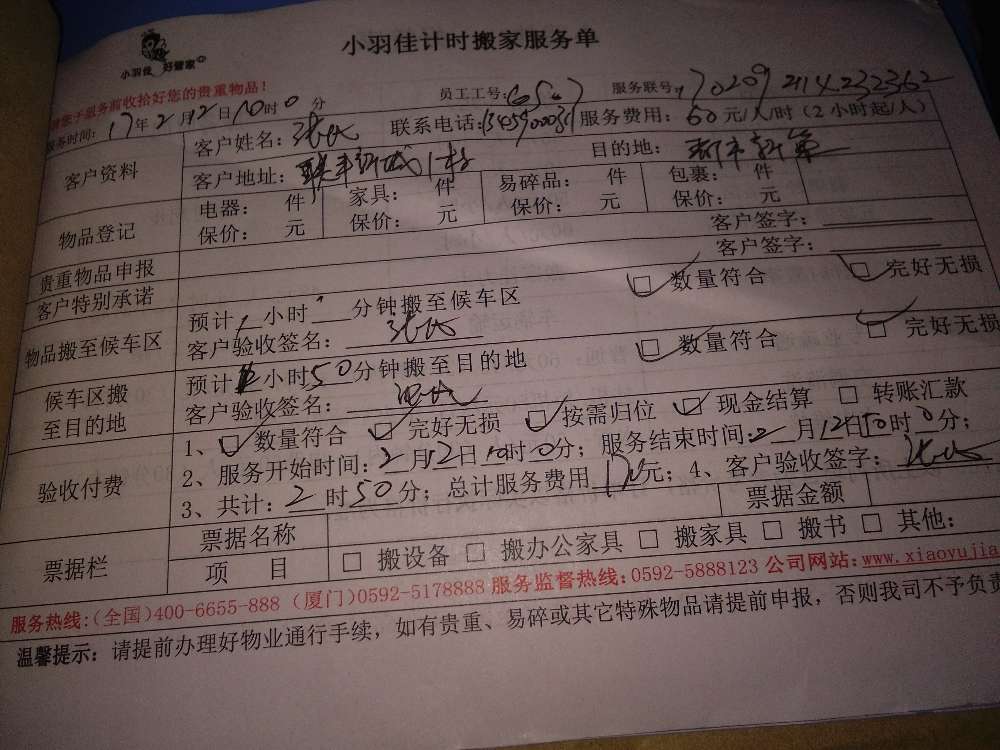 小羽佳计时搬家服务单
小羽佳 好管家
请您于服务前收拾好您的贵重物品!
员工工号: 服务联号: 170209 2114232362
服务时间: 17年2月12日10时0分
客户资料 客户姓名: 联系电话: 服务费用: 60元/人/时(2小时起/人)
客户地址: 目的地:
物品登记 电器: 件 家具: 件 易碎品: 件 包裹: 件
保价: 元 保价: 元 保价: 元 保价: 元
贵重物品申报 客户签字:
客户特别承诺 客户签字:
物品搬至候车区 预计1小时 分钟搬至候车区 □ 数量符合 □ 完好无损
客户验收签名:
候车区搬至目的地 预计 小时50分钟搬至目的地 □ 数量符合 □ 完好无损
客户验收签名:
验收付费 1、□ 数量符合 □ 完好无损 □ 按需归位 □ 现金结算 □ 转账汇款
2、服务开始时间:2月12日10时0分; 服务结束时间:2月12日 时0分;
3、共计:2时50分; 总计服务费用 元; 4、客户验收签字:
票据栏 票据名称 票据金额
项 目 □ 搬设备 □ 搬办公家具 □ 搬家具 □ 搬书 □ 其他:
服务热线:(全国)400-6655-888 (厦门)0592-5178888 服务监督热线:0592-5888123 公司网站:www.xiaoyujia
温馨提示: 请提前办理好物业通行手续, 如有贵重、易碎或其它特殊物品请提前申报, 否则我司不予负责